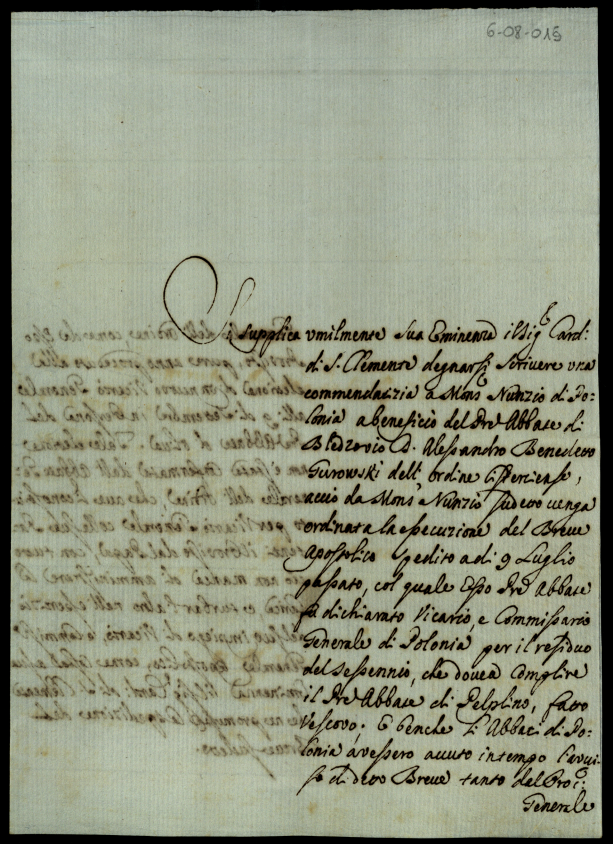 6-08-015
Si supplica umilmente Sua Eminenza il Sig.r Card:
di S. Clemente degnarsi scrivere una
commendatizia a Mons Nunzio di Po=
lonia a beneficio del Pre Abbate di
Bledzovio D. Alessandro Benedetto
Gurowski dell' ordine Cisterciense,
acciò da Mons Nunzio sudetto venga
ordinata la esecuzione del Breve
Apostolico spedito a di 9 Luglio
passato, col quale Esso Pre Abbate
fù dichiarato Vicario, e Commissario
Generale di Polonia per il residuo
del Sessennio, che doveva compire
il Pre Abbate di Pelplino, fatto
Vescovo; E benche li Abbati di Po=
lonia avessero avuto in tempo l'avvi=
so di detto Breve tanto dal Proc:
Generale